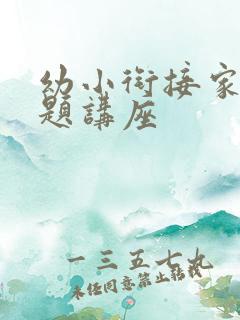 幼小衔接家
题讲座
一三五七九
未经同意禁止转载